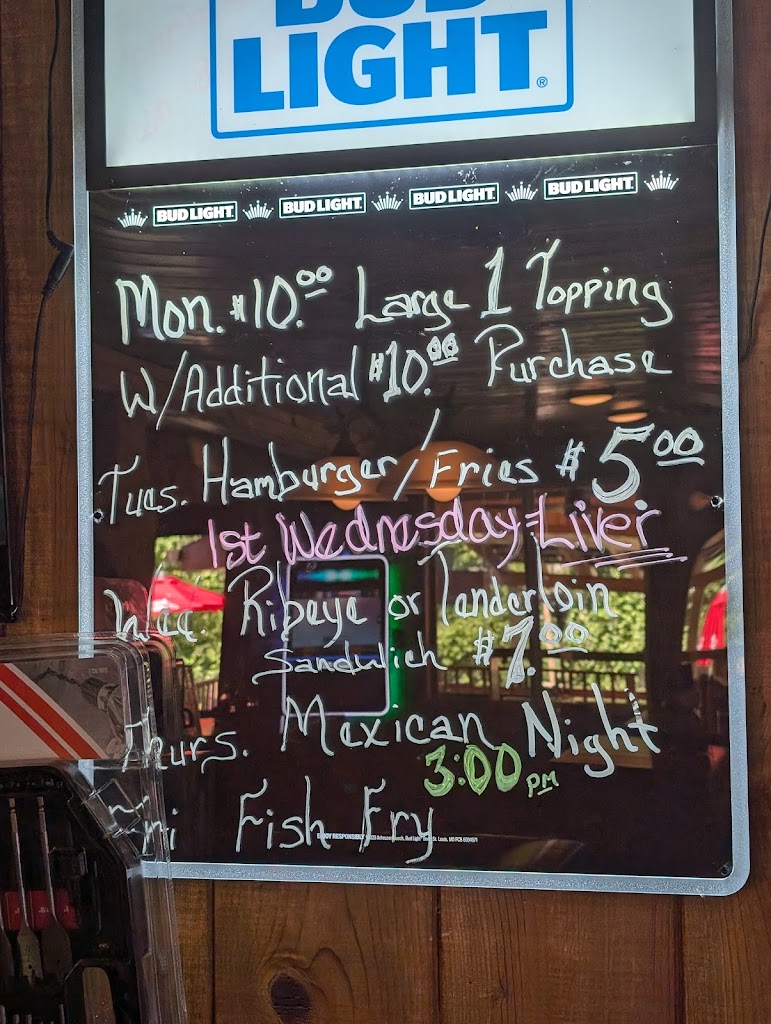 BUD
LIGHT®
BUD LIGHT BUD LIGHT BUD LIGHT BUD LIGHT
Mon. $10.00 Large 1 Topping
W/Additional $10.00 Purchase
Tues. Hamburger/Fries $5.00
1st Wednesday=Liver
Wed. Ribeye or Tenderloin
Sandwich $7.00
Thurs. Mexican Night
3:00 PM
Fri Fish Fry
ENJOY RESPONSIBLY